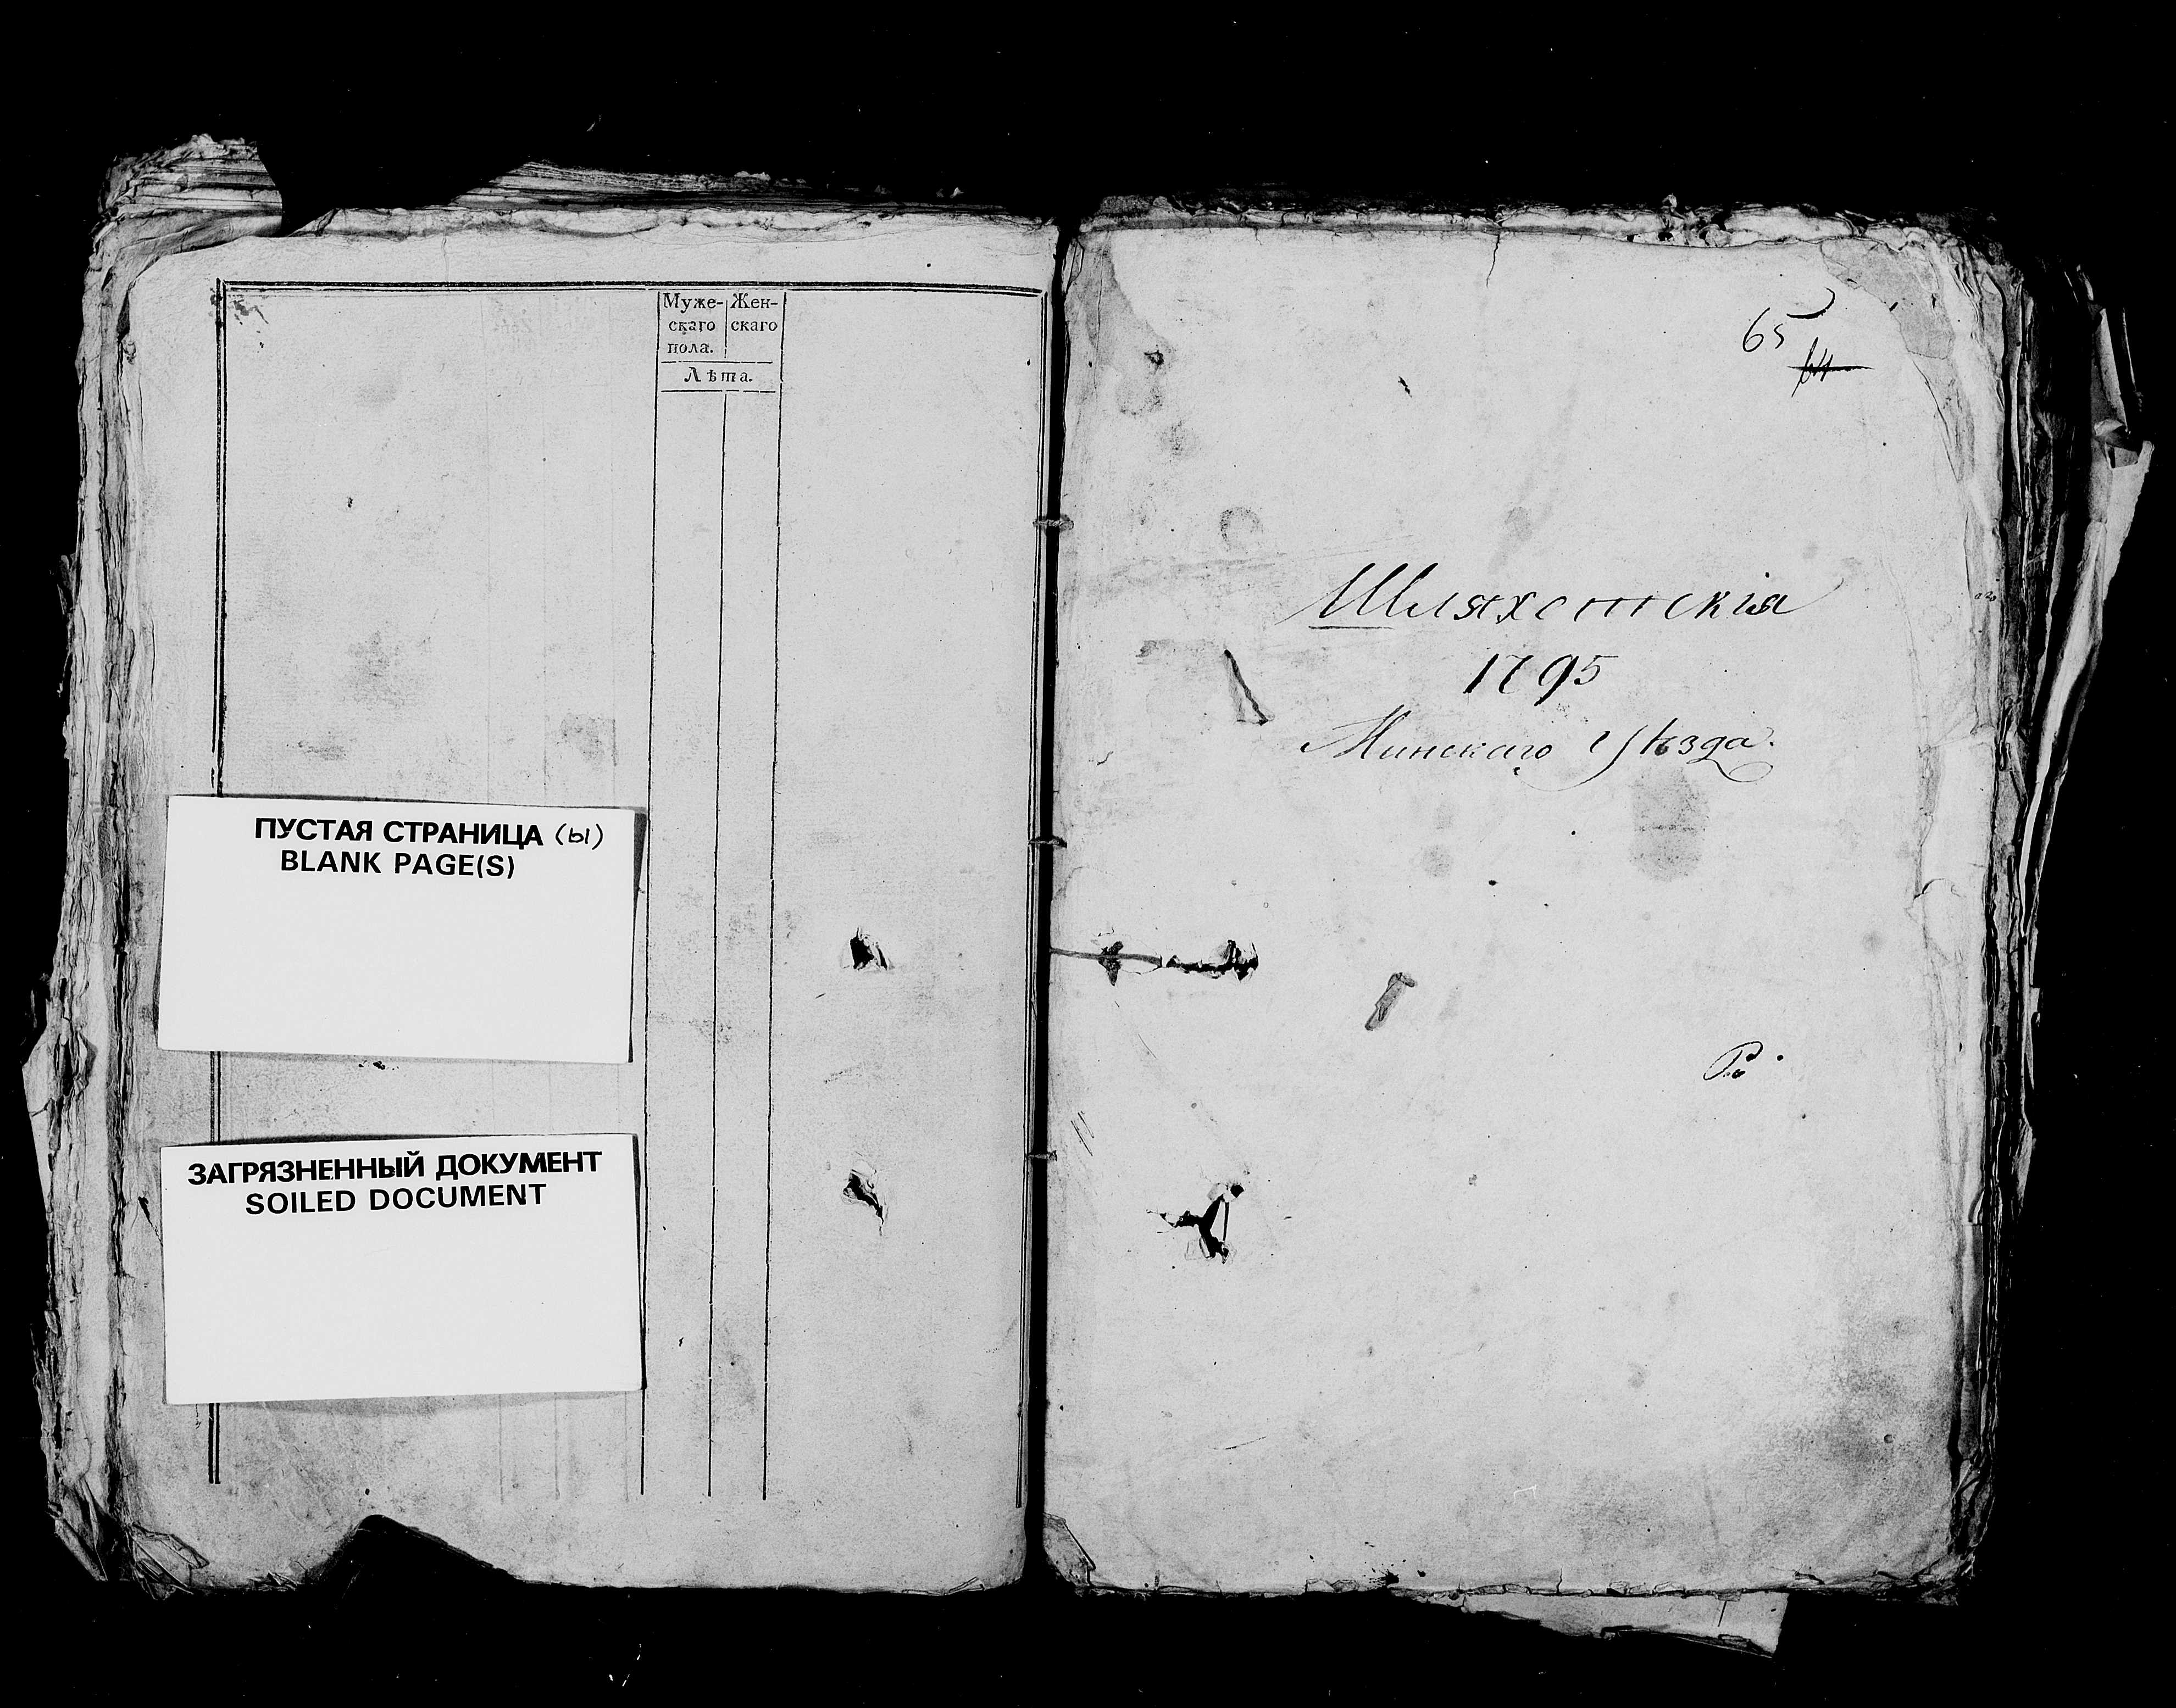 Муже-
скаго
пола.
Жен-
скаго
Лѣта.
ПУСТАЯ СТРАНИЦА (ы)
BLANK PAGE(S)
ЗАГРЯЗНЕННЫЙ ДОКУМЕНТ
SOILED DOCUMENT
65
64
Шляхетскія
1795
Минскаго уѣзда.